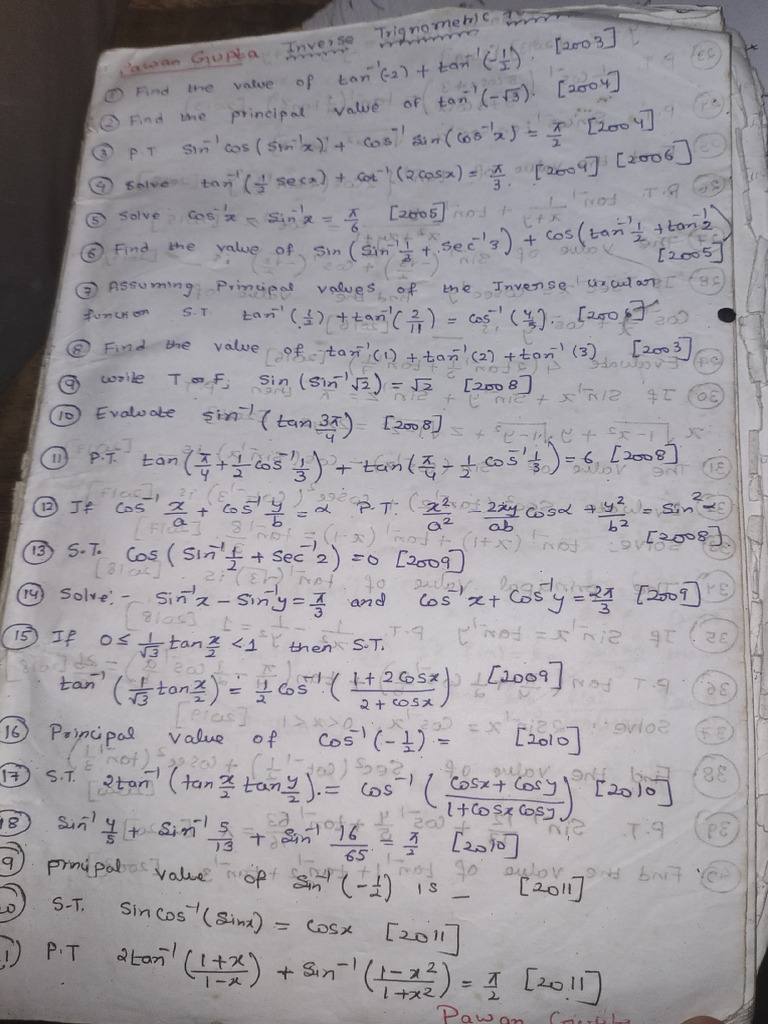 Pawan Gupta Inverse Trignometric
① Find the value of tan⁻¹(-2) + tan⁻¹(-1/2). [2003]
② Find the principal value of tan⁻¹(-√3). [2004]
③ P.T sin⁻¹ cos(sin⁻¹x) + cos⁻¹ sin(cos⁻¹x) = π/2 [2004]
④ Solve tan⁻¹(1/2 secx) + cot⁻¹(2cosx) = π/3. [2004] [2006]
⑤ Solve cos⁻¹x - sin⁻¹x = π/6 [2005]
⑥ Find the value of sin(sin⁻¹ 1/3 + sec⁻¹3) + cos(tan⁻¹ 1/2 + tan⁻¹2)
[2005]
⑦ Assuming Principal values of the Inverse circular
function S.T tan⁻¹(1/2) + tan⁻¹(2/11) = cos⁻¹(4/5).
⑧ Find the value of tan⁻¹(1) + tan⁻¹(2) + tan⁻¹(3) [2003]
⑨ write T or F, sin(sin⁻¹√2) = √2 [2008]
⑩ Evaluate sin⁻¹(tan 3π/4) [2008]
⑪ P.T. tan(π/4 + 1/2 cos⁻¹ 1/3) + tan(π/4 - 1/2 cos⁻¹ 1/3) = 6 [2008]
⑫ If cos⁻¹ x/a + cos⁻¹ y/b = α P.T. x²/a² - 2xy/ab cosα + y²/b² = sin²α
[2008]
⑬ S.T. cos(sin⁻¹ 1/2 + sec⁻¹2) = 0 [2009]
⑭ Solve:- sin⁻¹x - sin⁻¹y = π/3 and cos⁻¹x + cos⁻¹y = 2π/3 [2009]
⑮ If 0 ≤ 1/√3 tan x/2 < 1 then S.T.
tan⁻¹(1/√3 tan x/2) = 1/2 cos⁻¹((1+2cosx)/(2+cosx)) [2009]
⑯ Principal value of cos⁻¹(-1/2) = [2010]
⑰ S.T. 2tan⁻¹(tan x/2 tan y/2) = cos⁻¹((cosx + cosy)/(1+cosx cosy)) [2010]
18 sin⁻¹ 4/5 + sin⁻¹ 5/13 + sin⁻¹ 16/65 = π/2 [2010]
9 principal value of sin⁻¹(-1/2) is _ [2011]
0 S.T. sin cos⁻¹(sinx) = cosx [2011]
1) P.T 2tan⁻¹((1+x)/(1-x)) + sin⁻¹((1-x²)/(1+x²)) = π/2 [2011]
Pawan